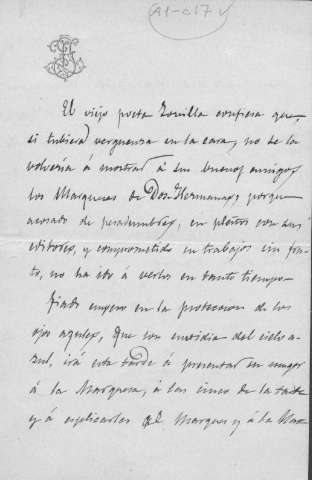 A1-017 v
El viejo poeta Zorrilla confiesa que,
si tubiera verguenza en la cara, no se la
volveria á mostrar á sus buenos amigos
los Marqueses de Dos-Hermanas; porque
acosado de pesadumbres, en pleitos con sus
editores, y comprometido en trabajos sin fru-
to, no ha ido á verlos en tanto tiempo.
Fiado empero en la proteccion de los
ojos azules, que son envidia del cielo a-
zul, irá esta tarde á presentar su muger
á la Marquesa, á las cinco de la tarde
y á esplicarles al Marques y á la Mar-